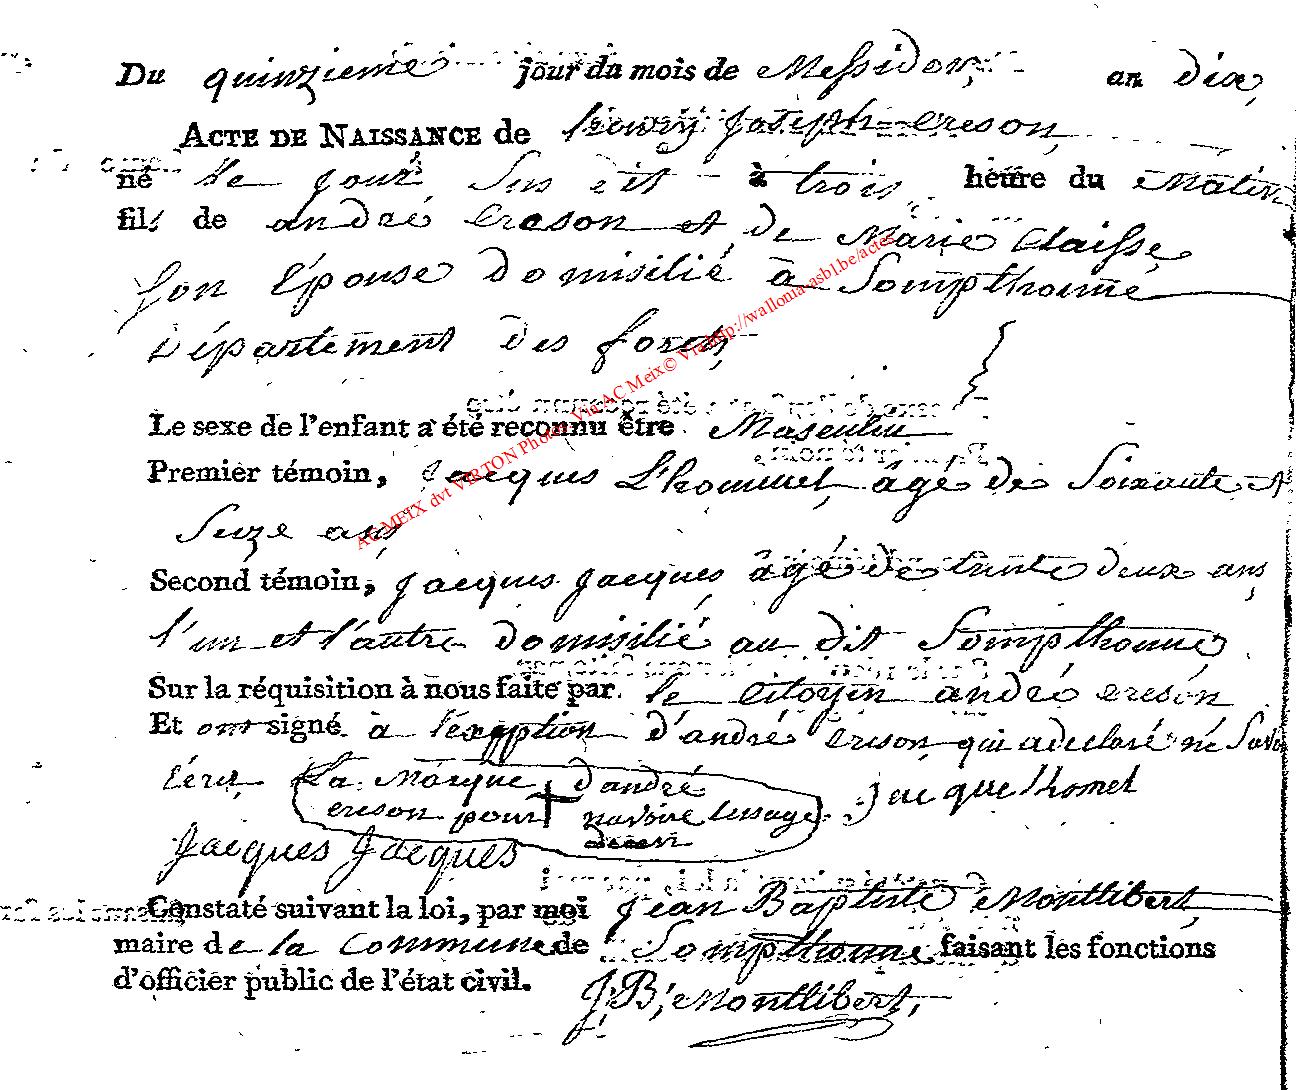 Du quinzieme jour du mois de Messidor, an dix,
ACTE DE NAISSANCE de henry Joseph ereson,
né le jour sus dit à trois heure du matin
fils de andré ereson et de Marie Claisse,
son épouse domisilié à Sompthonne
Département des forets,
Le sexe de l'enfant a été reconnu être Masculin
Premier témoin, Jacques L'hommel, âgé de soixante et
seize ans
Second témoin, Jacques Jacques, âgé de trente deux ans,
l'un et l'autre domisilié au dit Sompthonne,
Sur la réquisition à nous faite par le citoyen andré ereson
Et ont signé à l'exeption d'andré erison qui a declaré ne savoir
La Marque d'andré
ereson pour
Jacque lhomel
Jacques Jacques
Constaté suivant la loi, par moi Jean Baptiste Montlibert,
maire de la Commune de Sompthonne faisant les fonctions
d'officier public de l'état civil.
J: B; Montlibert,
AC MEIX dvt VIRTON Photos Via AC Meix © Via http://wallonia-asbl.be/actes